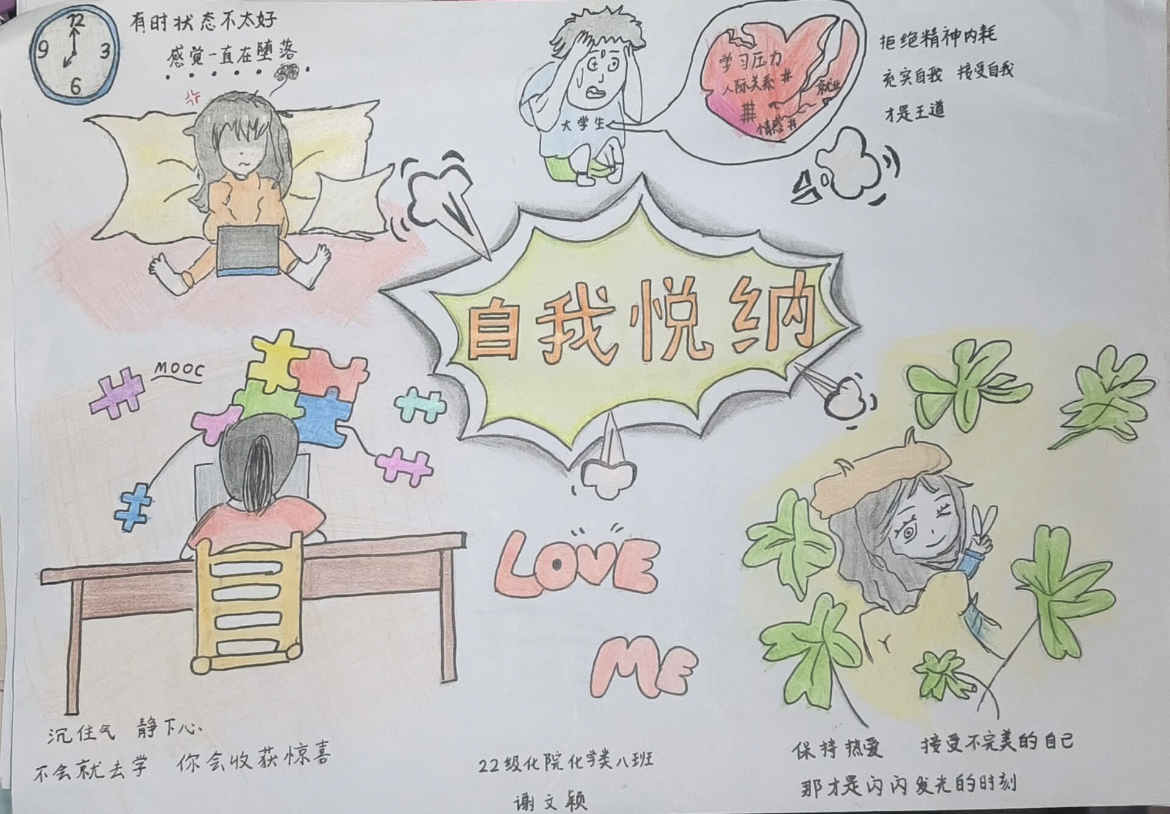 12
9 3
6
有时状态不太好
感觉一直在堕落
......
大学生
学习压力
人际关系 #
就业
#
情感 #
拒绝精神内耗
充实自我 接受自我
才是王道
自我悦纳
MOOC
LOVE
ME
沉住气 静下心
不会就去学 你会收获惊喜
22级化院化学类八班
谢文颖
保持热爱 接受不完美的自己
那才是闪闪发光的时刻